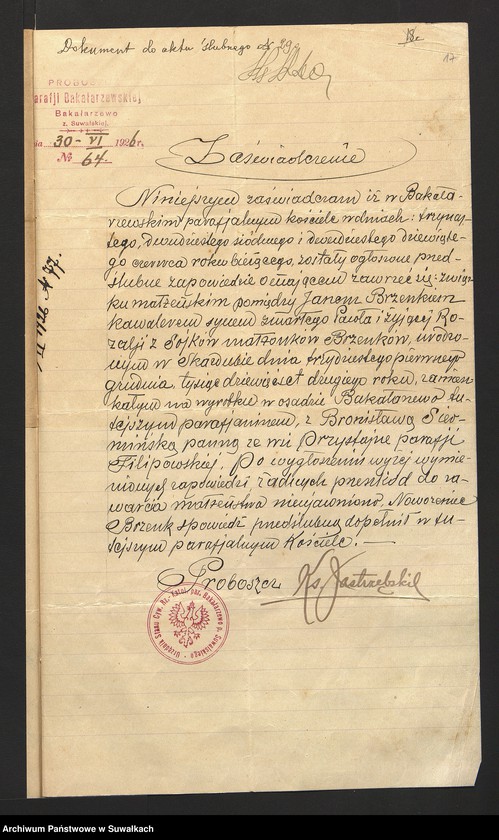 Dokument do aktu ślubnego № 29.
18.
17
PROBOS
arafji Bakałarzewskiej
Bakałarzewo
z. Suwalskiej.
30-VI 1926 r.
№ 64.
Zaświadczenie
Niniejszym zaświadczam iż w Bakała-
rzewskim parafjalnym kościele w dniach: trzynas-
tego, dwudziestego siódmego i dwudziestego dziewiąte-
go czerwca roku bieżącego, zostały ogłoszone przed-
ślubne zapowiedzie o mającem zawrzeć się związ-
ku małżeńskim pomiędzy Janem Brzenkiem
kawalerem synem zmarłego Pawła i żyjącej Ro-
zalji z Sojków małżonków Brzenków, urodzo-
nym w Skazdubie dnia trzydziestego pierwszego
grudnia, tysiąc dziewięćset drugiego roku, zamiesz-
kałym na wyrobku w osadzie Bakałarzewo tu-
tejszym parafjaninem, z Bronisławą
panną ze wsi Przystajne parafji
Filipowskiej. Po wygłoszeniu wyżej wymie-
nionych zapowiedzi żadnych przeszkód do za-
warcia małżeństwa nieujawniono. Nowożeniec
Brzenk spowiedź przedślubną dopełnił w tu-
tejszym parafjalnym Kościele.—
Proboszcz Ks. Jastrzębski
Urzędnik Stanu Cyw. Rz.-Katol. par. Bakałarzewo p. Suwalskiego
1926 r. № 47.
Archiwum Państwowe w Suwałkach